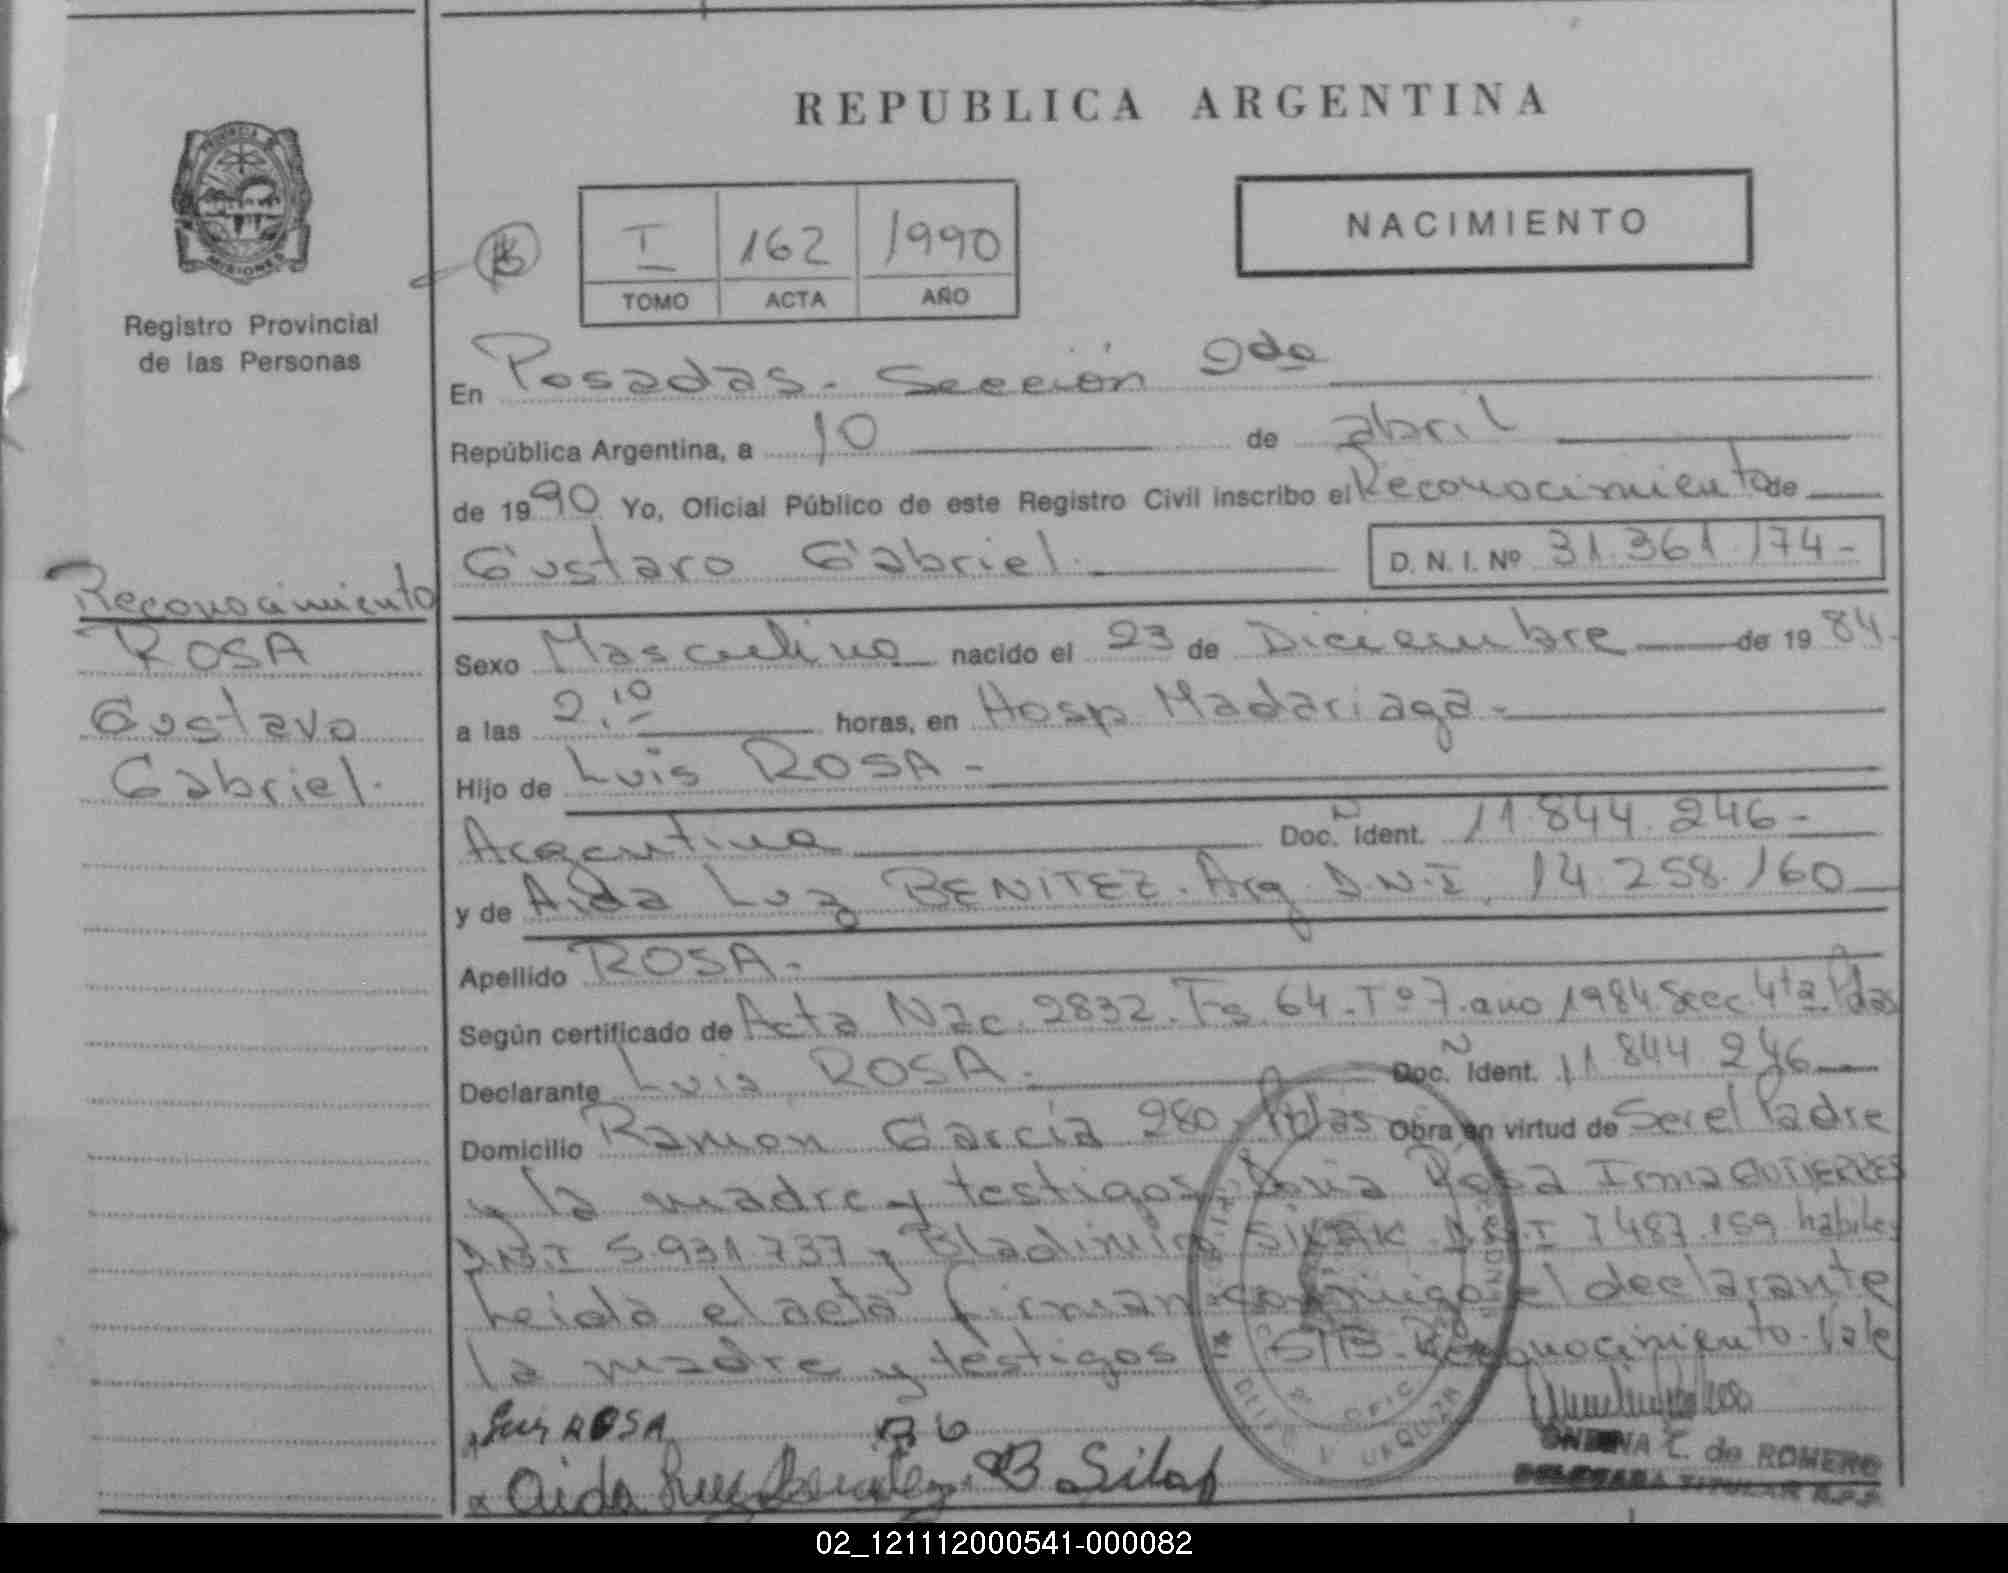 REPUBLICA ARGENTINA
PROVINCIA DE
MISIONES
Registro Provincial
de las Personas
I 162 1990
TOMO ACTA AÑO
NACIMIENTO
En Posadas - Sección 2da
República Argentina, a 10 de abril
de 1990 Yo, Oficial Público de este Registro Civil inscribo el Reconocimiento de
Gustavo Gabriel. D. N. I. Nº 31.361.174-
Reconocimiento
ROSA
Gustavo
Gabriel.
Sexo Masculino nacido el 23 de Diciembre de 1984-
a las 2.10 horas, en Hosp Madariaga-
Hijo de Luis ROSA-
Argentino Doc. Ident. 11.844.246-
y de Aida Luz BENITEZ. Arg. D.N.I. 14.258.160
Apellido ROSA-
Según certificado de Acta Nac. 2832. Fs 64-Tº7.año 1984.Secc.4ta Pdas
Declarante Luis ROSA. Doc. Ident. 11 844 246
Domicilio Ramon Garcia 280 Pdas Obra en virtud de Ser el Padre
y la madre y testigos Rosa Irma GUTIERREZ
D.N.I 5.931.737 y Bladimir D.N.I 7487.159 habiles
Leida el acta firman conmigo el declarante
la madre y testigos S/B. Reconocimiento. Vale
Luis ROSA
Aida Luz Benitez B Silak
C. de ROMERO
DELEGADA TITULAR R.P.P.
URQUIZA
02_121112000541-000082